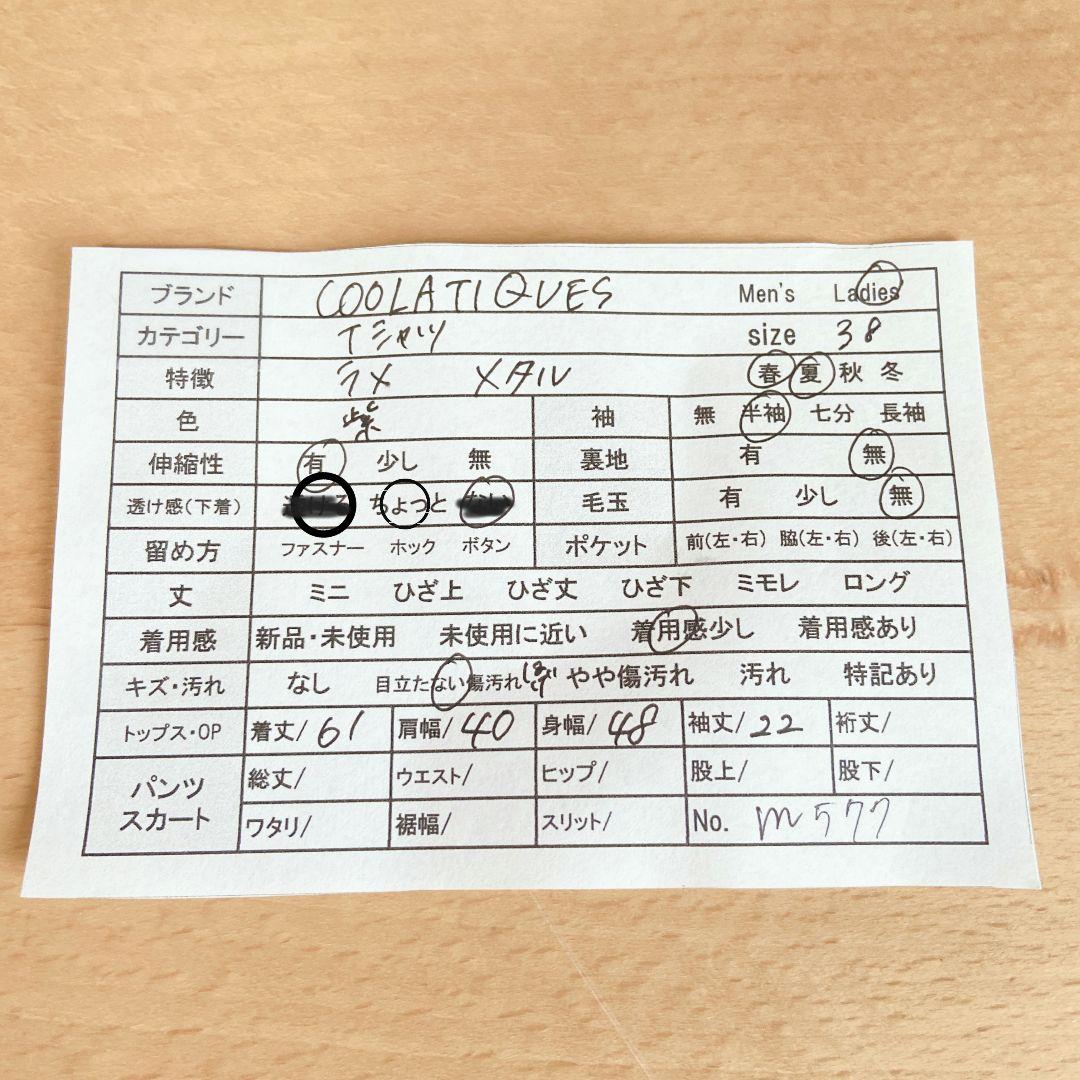 ブランド COOLATIQUES Men's Ladies
カテゴリー Tシャツ size 38
特徴 ラメ メタル 春 夏 秋 冬
色 紫 袖 無 半袖 七分 長袖
伸縮性 有 少し 無 裏地 有 無
透け感(下着) ちょっと 毛玉 有 少し 無
留め方 ファスナー ホック ボタン ポケット 前(左・右) 脇(左・右) 後(左・右)
丈 ミニ ひざ上 ひざ丈 ひざ下 ミモレ ロング
着用感 新品・未使用 未使用に近い 着用感少し 着用感あり
キズ・汚れ なし 目立たない傷汚れ やや傷汚れ 汚れ 特記あり
トップス・OP 着丈/61 肩幅/40 身幅/48 袖丈/22 裄丈/
パンツ スカート 総丈/ ウエスト/ ヒップ/ 股上/ 股下/
ワタリ/ 裾幅/ スリット/ No. m577